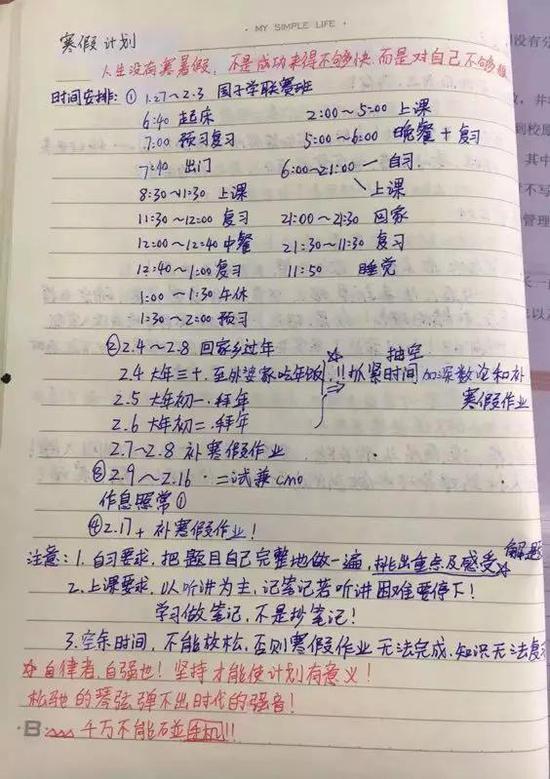 MY SIMPLE LIFE
寒假计划
人生没有寒暑假，不是成功来得不够快，而是对自己不够狠
时间安排：① 1.27~2.3 国子学联赛班
6:40 起床 2:00~5:00 上课
7:00 预习复习 5:00~6:00 晚餐+复习
7:40 出门 6:00~21:00 一 自习
上课
8:30~11:30 上课
11:30~12:00 复习 21:00~21:30 回家
12:00~12:40 中餐 21:30~11:30 复习
12:40~1:00 复习 11:50 睡觉
1:00~1:30 午休
1:30~2:00 预习
② 2.4~2.8 回家乡过年 抽空
2.4 大年三十.至外婆家吃年饭 !! 抓紧时间加深数论和补
2.5 大年初一.拜年 寒假作业
2.6 大年初二.拜年
2.7~2.8 补寒假作业
③ 2.9~2.16 二试兼cmo
作息照常①
④ 2.17+ 补寒假作业！
注意：1.自习要求，把题目自己完整地做一遍，挑出重点及感受 解题
2.上课要求，以听讲为主，记笔记若听讲困难要停下！
学习做笔记，不是抄笔记！
3.空余时间，不能放松，否则寒假作业无法完成，知识无法复
☆自律者，自强也！坚持才能使计划有意义！
松驰的琴弦弹不出时代的强音！
B 千万不能碰手机!!
没有分
并
到校原
其中
不写
管理